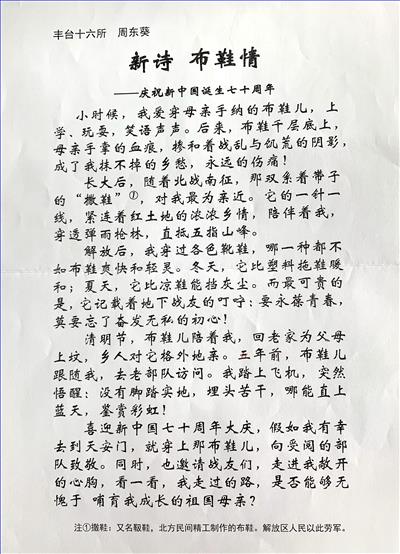 丰台十六所　周东葵
新诗 布鞋情
——庆祝新中国诞生七十周年
小时候，我爱穿母亲手纳的布鞋儿，上
学、玩耍，笑语声声。后来，布鞋千层底上，
母亲手掌的血痕，掺和着战乱与饥荒的阴影，
成了我抹不掉的乡愁，永远的伤痛！
长大后，随着北战南征，那双系着带子
的“撒鞋”①，对我最为亲近。它的一针一
线，紧连着红土地的浓浓乡情，陪伴着我，
穿透弹雨枪林，直抵五指山峰。
解放后，我穿过各色靴鞋，哪一种都不
如布鞋爽快和轻灵。冬天，它比塑料拖鞋暖
和；夏天，它比凉鞋能挡灰尘。而最可贵的
是，它记载着地下战友的叮咛：要永葆青春，
莫要忘了奋发无私的初心！
清明节，布鞋儿陪着我，回老家为父母
上坟，乡人对它格外地亲。三年前，布鞋儿
跟随我，去老部队访问。我踏上飞机，突然
悟醒：没有脚踏实地，埋头苦干，哪能直上
蓝天，鉴赏彩虹！
喜迎新中国七十周年大庆，假如我有幸
去到天安门，就穿上那布鞋儿，向受阅的部
队致敬。同时，也邀请战友们，走进我敞开
的心胸，看一看，我走过的路，是否能够无
愧于 哺育我成长的祖国母亲？
注①撒鞋：又名靸鞋，北方民间精工制作的布鞋。解放区人民以此劳军。